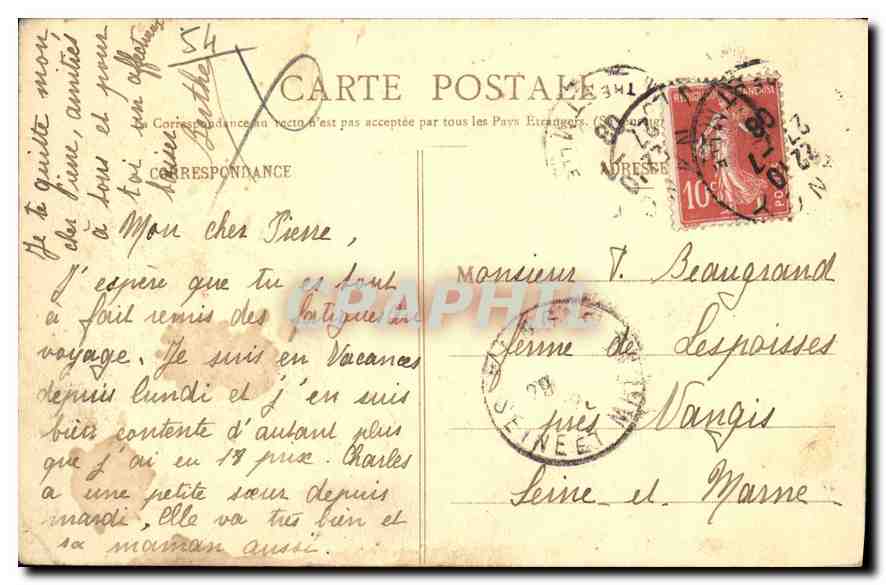 CARTE POSTALE
La Correspondance au recto n'est pas acceptée par tous les Pays Etrangers.
CORRESPONDANCE
ADRESSE
54
Mon cher Pierre,
J'espère que tu es tout
à fait remis des fatigues du
voyage. Je suis en Vacances
depuis lundi et j'en suis
bien contente d'autant plus
que j'ai eu 18 prix. Charles
a une petite sœur depuis
mardi, Elle va très bien et
sa maman aussi.
Je te quitte mon
cher Pierre, amitiés
à tous et pour
toi bon affectueux
baiser
Berthe
Monsieur P. Beaugrand
ferme de Lespoisses
près Nangis
Seine et Marne
REPUBLIQUE FRANÇAISE
10
SEINE ET M
CRAPHIL